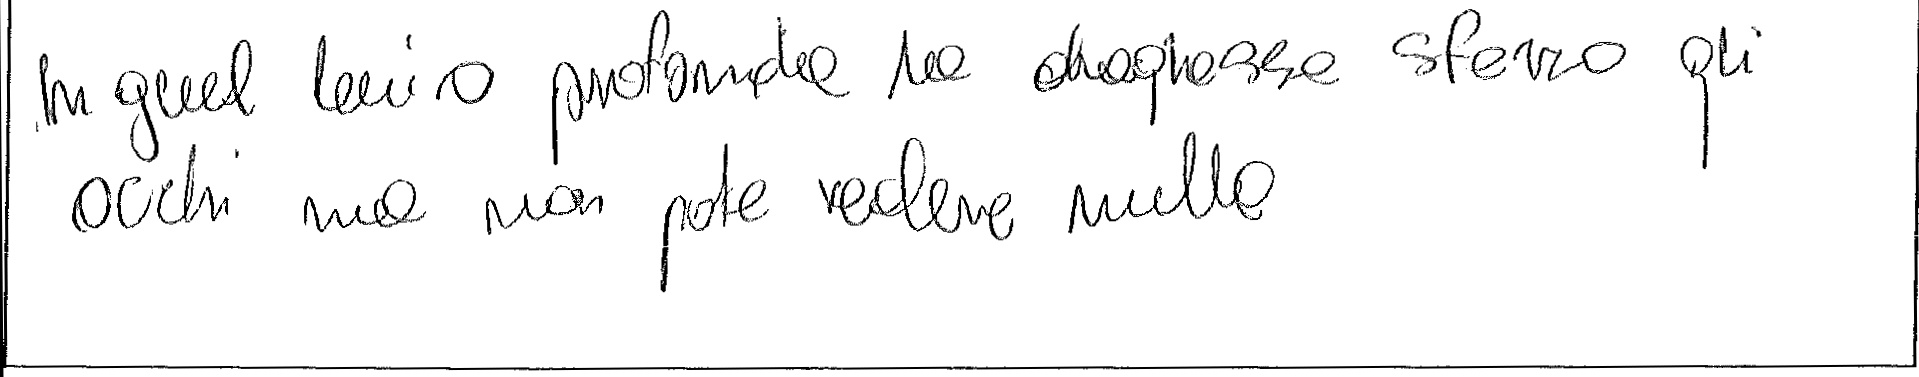 In quel buio profonda la draghessa sforzo gli
occhi ma non pote vedere nulla